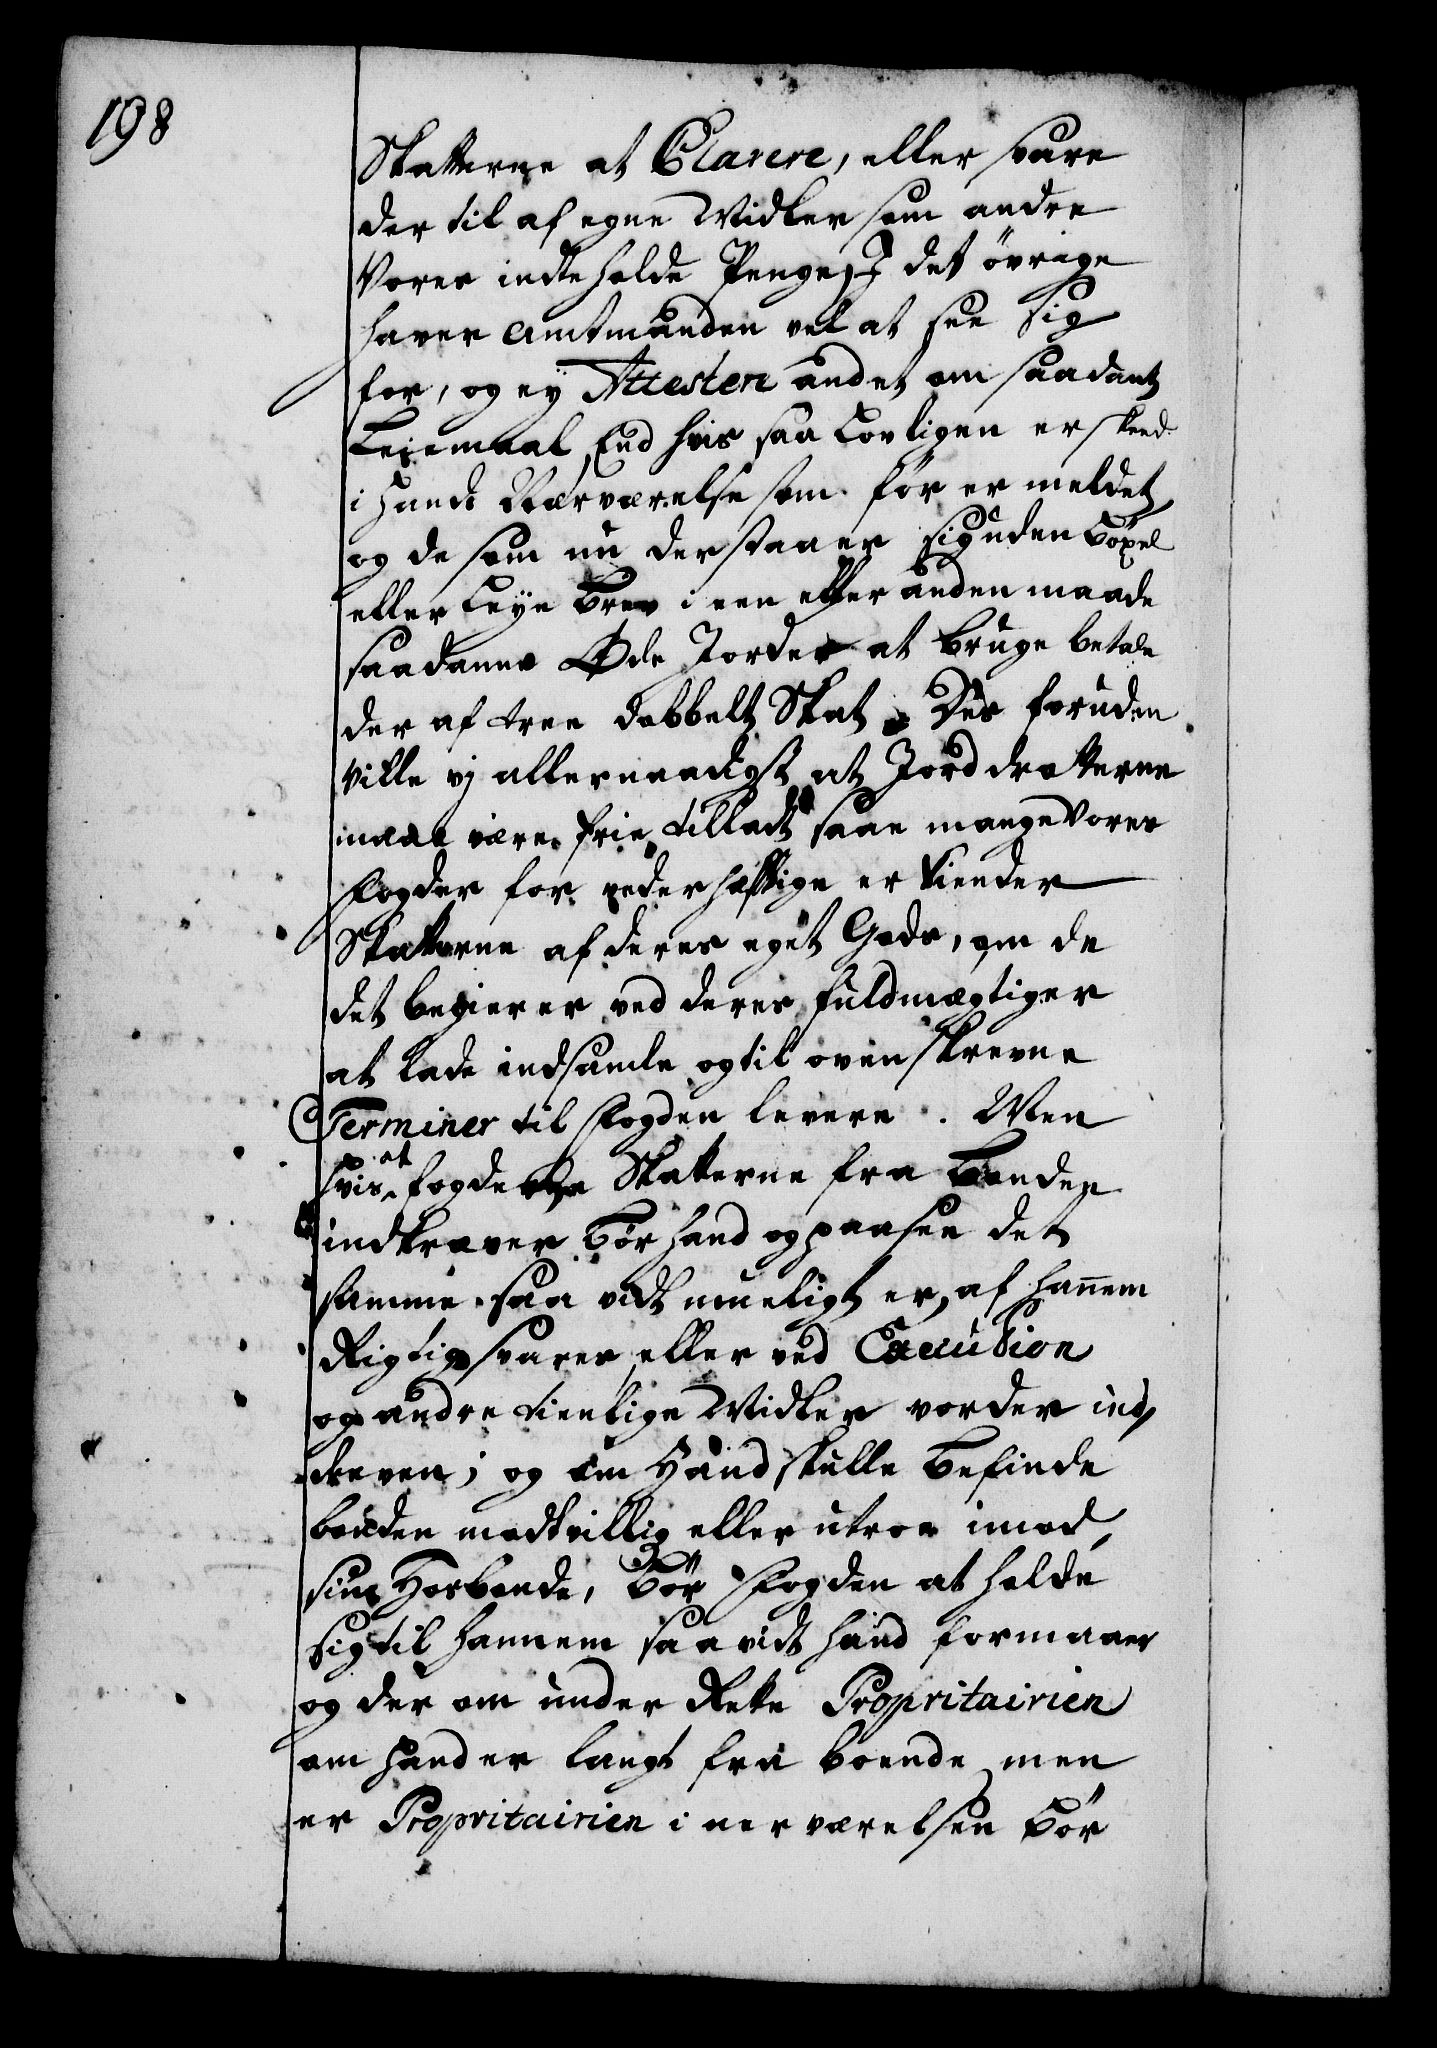 198
Skatterne at Clarere, eller svare
der til af egne Midler som andre
Vores indeholde Penge, J det övrige
haver Amtmanden vel at see sig
for, og ey Attestere andet om saadant
Leiemaal End hvis saa Lovligen er skeed
i hands Nærværelse som før er meldet,
og de som nu derstaaer sig uden Böxel
eller Leye Brev i een eller anden maade
saadanne Øde Jorder at bruge betale
der af tree dobbelt Skat. Des foruden
ville vj allernaadigst at Jorddrotterne
maae være frie tilladt saa mange Vores
Fogder for vederhæftige erkiender
Skatterne af deres eget Gods, om de
det begierer ved deres fuldmægtiger
at lade indsamle og til ovenskrevne
Terminer til Fogden levere. Men
hvis at fogderne Skatterne fra Bonden
indkræver bör hand og paasee det
samme saa vidt mueligt er, af hannem
Rigtig svares, eller ved Execution
og andre tienlige Midler vorder ind,
dreven; og om Hand skulle befinde
bonden modtvillig eller utroe imod,
sin Hosbonde, bör Fogden at holde
sig til hannem saavidt hand formaaer
og der om under Rette Propritairien
om hand er langt fra boende, men
er Propritairien i nerværelsen bör